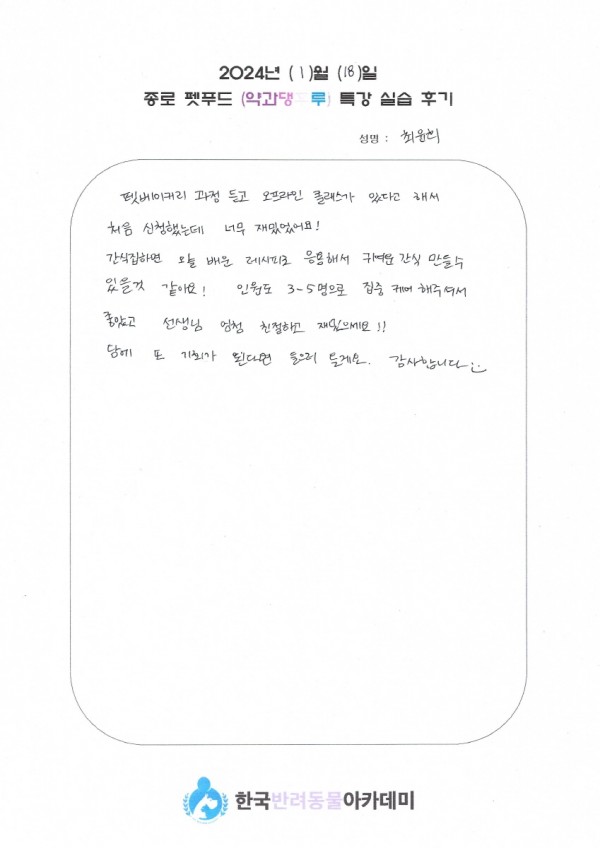 2024년 ( 1 )월 (18)일
종로 펫푸드 (약과댕 루) 특강 실습 후기
성명 : 최윤희
펫베이커리 과정 듣고 오프라인 클래스가 있다고 해서
처음 신청했는데 너무 재밌었어요!
간식집하면 오늘 배운 레시피로 응용해서 귀여운 간식 만들수
있을것 같아요! 인원도 3~5명으로 집중 케어 해주셔서
좋았고 선생님 엄청 친절하고 재밌으세요!!
담에 또 기회가 된다면 들으러 올게요. 감사합니다 :)
한국반려동물아카데미